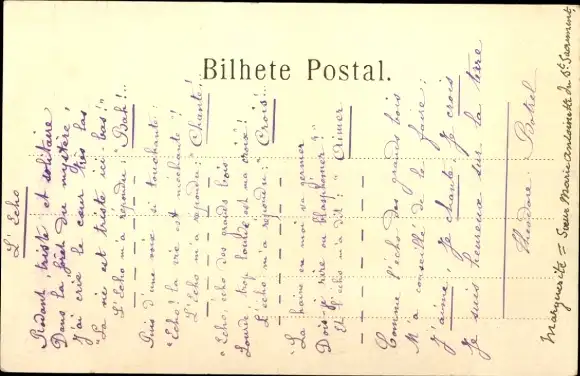 Bilhete Postal.
L'Echo
Rôdant, triste et solitaire
Dans la forêt du mystère,
J'ai crié le cœur très las
"La vie est triste ici bas!"
L'Echo m'a répondu: "Bah!..
Puis d'une voix si touchante:
"Echo! la vie est méchante!
L'Echo m'a répondu: "Chante!
"Echo, écho des grands bois
Lourde, trop lourde est ma croix!
L'écho m'a répondu: "Crois...
"La haine en moi va germer
Dois-je rire ou blasphémer?"
Et l'écho m'a dit: "Aimer
Comme l'écho des grands bois
M'a conseillé de le faire:
J'aime, Je chante, Je crois
Je suis heureux sur la terre
Théodore Botrel
Marguerite = Sœur Marie Antoinette du St Sacrement,